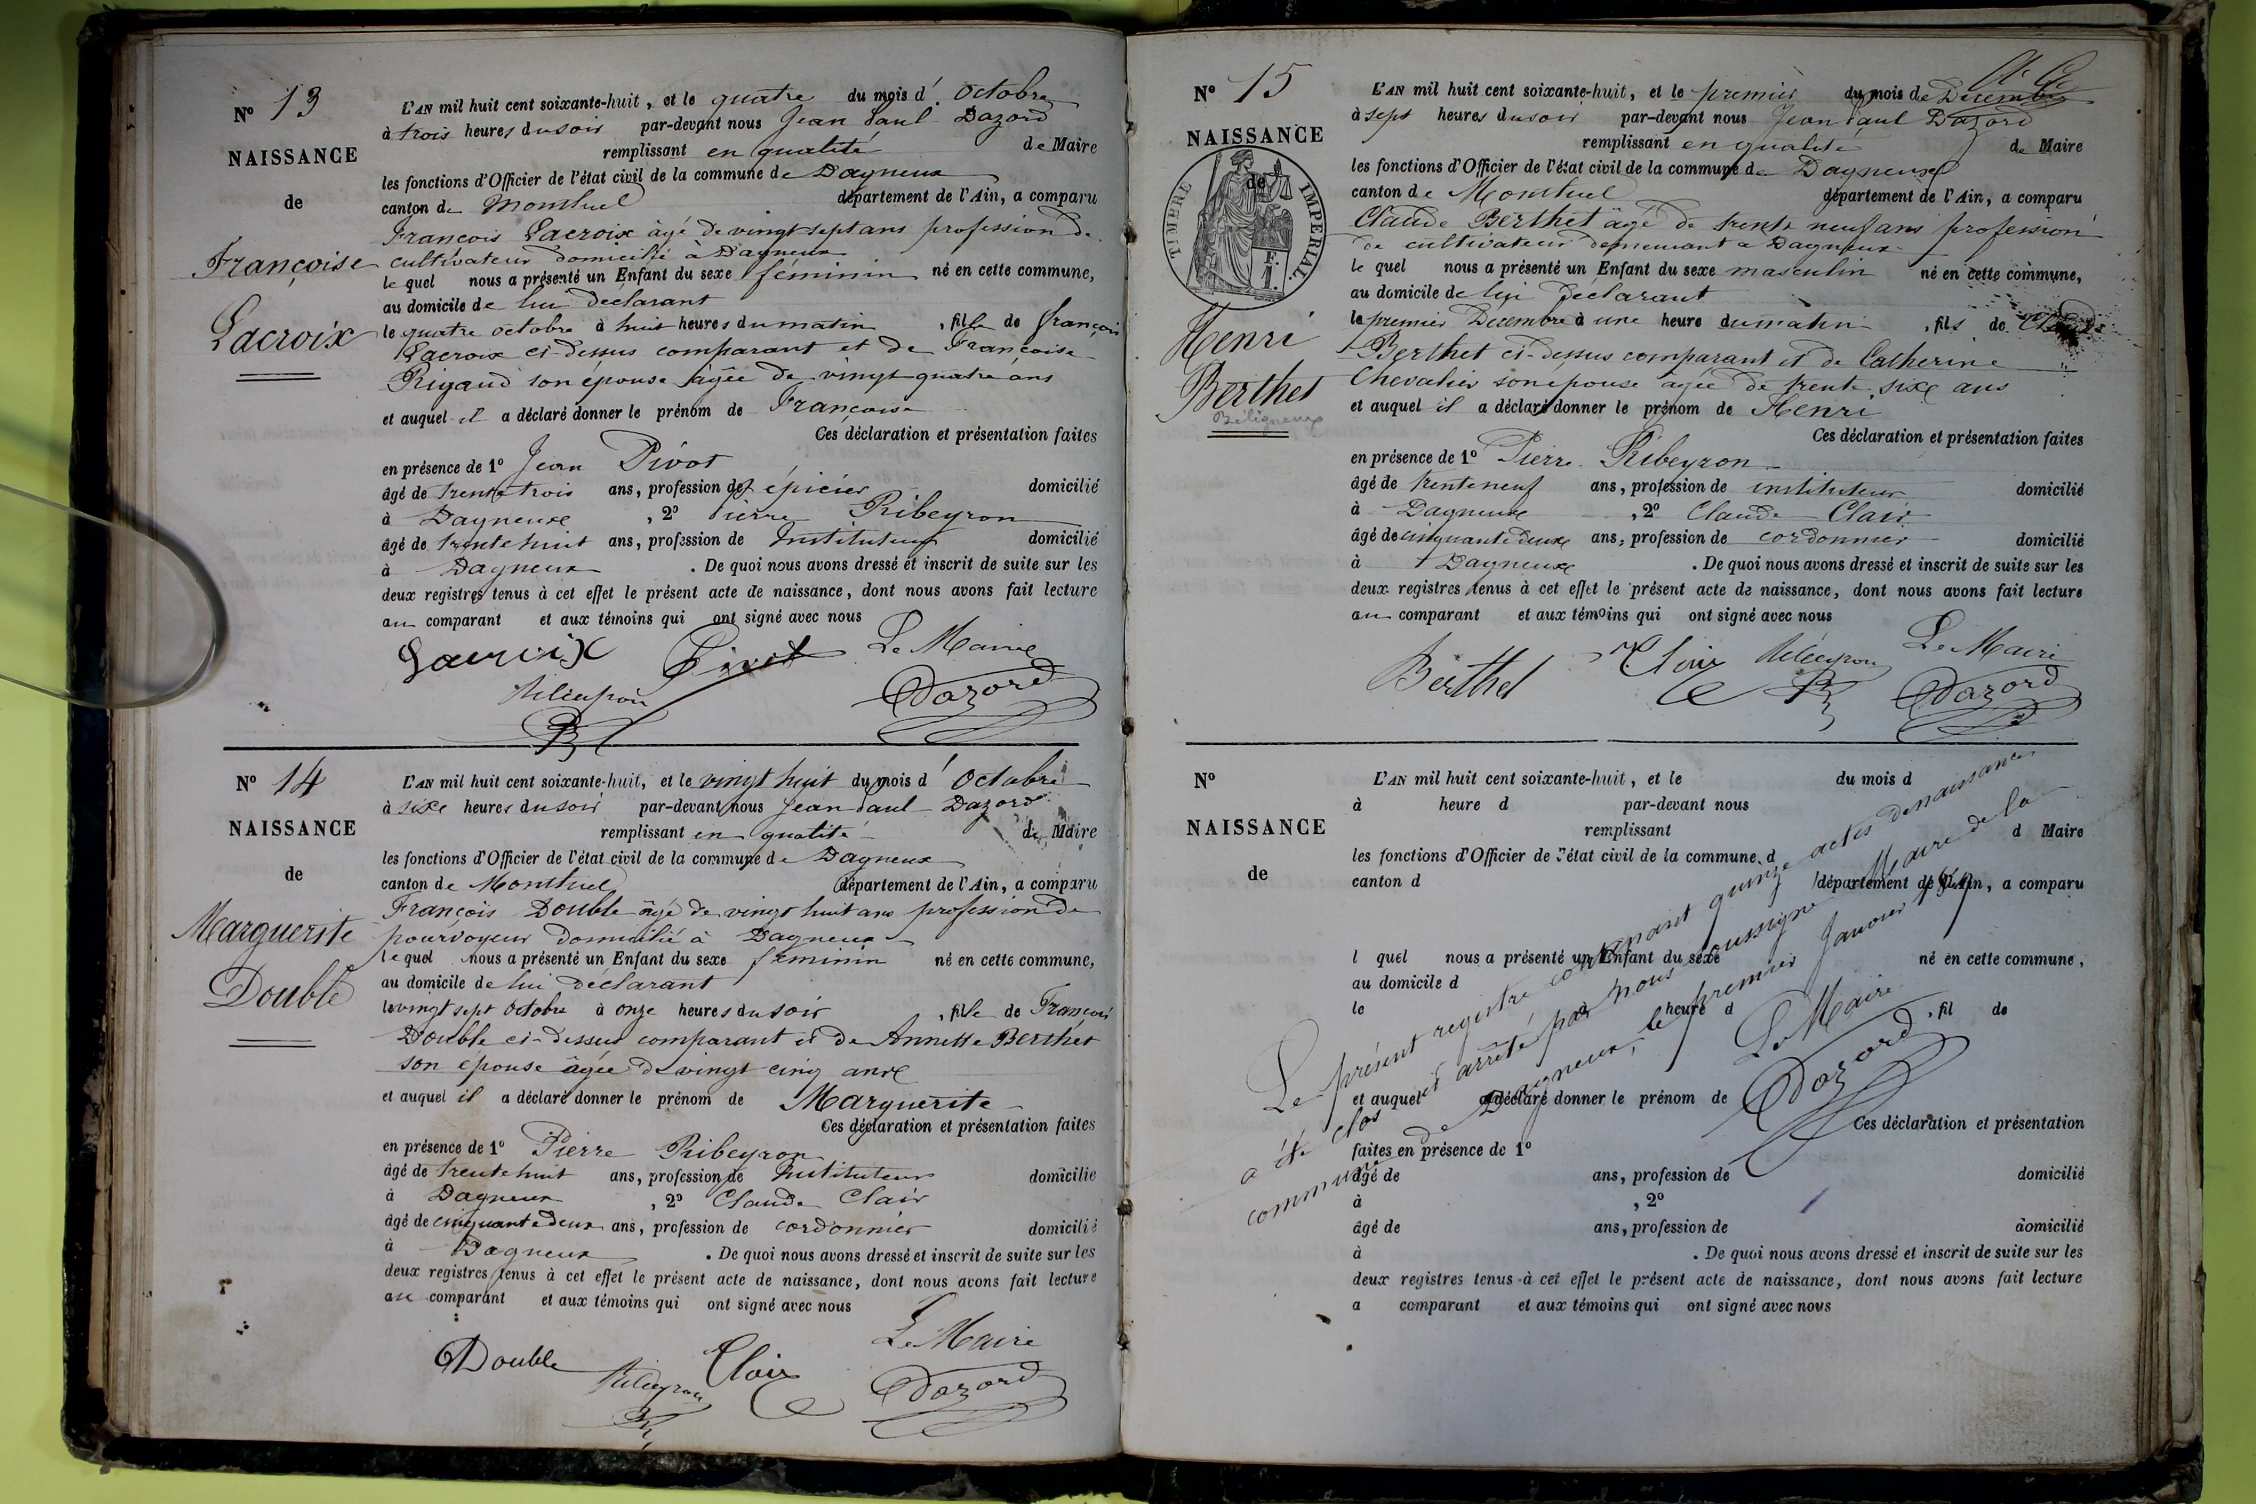 N° 13
NAISSANCE
de
Françoise
Lacroix
L'AN mil huit cent soixante-huit, et le quatre du mois d'Octobre
à trois heures du soir par-devant nous Jean Paul Dazord
remplissant en qualité de Maire
les fonctions d'Officier de l'état civil de la commune de Dagneux
canton de Montluel département de l'Ain, a comparu
François Lacroix âgé de vingt sept ans profession de
cultivateur domicilié à Dagneux
le quel nous a présenté un Enfant du sexe féminin né en cette commune,
au domicile de lui déclarant
le quatre octobre à huit heures du matin, fille de françois
Lacroix ci-dessus comparant et de Françoise
Rigaud son épouse âgée de vingt quatre ans
et auquel il a déclaré donner le prénom de Françoise
Ces déclaration et présentation faites
en présence de 1° Jean Pivot
âgé de trente trois ans, profession de épicier domicilié
à Dagneux, 2° Pierre Ribeyron
âgé de trente huit ans, profession de Instituteur domicilié
à Dagneux. De quoi nous avons dressé et inscrit de suite sur les
deux registres tenus à cet effet le présent acte de naissance, dont nous avons fait lecture
au comparant et aux témoins qui ont signé avec nous
Lacroix Pivot Le Maire
Ribeyron Dazord
N° 14
NAISSANCE
de
Marguerite
Double
L'AN mil huit cent soixante-huit, et le vingt huit du mois d'Octobre
à sixe heures du soir par-devant nous Jean Paul Dazord
remplissant en qualité de Maire
les fonctions d'Officier de l'état civil de la commune de Dagneux
canton de Montluel département de l'Ain, a comparu
François Double âgé de vingt huit ans profession de
pourvoyeur domicilié à Dagneux
le quel nous a présenté un Enfant du sexe féminin né en cette commune,
au domicile de lui déclarant
le vingt sept Octobre à onze heures du soir, fille de François
Double ci-dessus comparant et de Annette Berthet
son épouse âgée de vingt cinq ans
et auquel il a déclaré donner le prénom de Marguerite
Ces déclaration et présentation faites
en présence de 1° Pierre Ribeyron
âgé de trente huit ans, profession de Instituteur domicilié
à Dagneux, 2° Claude Clair
âgé de cinquante deux ans, profession de cordonnier domicilié
à Dagneux. De quoi nous avons dressé et inscrit de suite sur les
deux registres tenus à cet effet le présent acte de naissance, dont nous avons fait lecture
au comparant et aux témoins qui ont signé avec nous
Le Maire
Double Ribeyron Clair Dazord
N° 15
NAISSANCE
de
TIMBRE IMPERIAL.
Henri
Berthet
Béligneux
L'AN mil huit cent soixante-huit, et le premier du mois de Décembre
à sept heures du soir par-devant nous Jean Paul Dazord
remplissant en qualité de Maire
les fonctions d'Officier de l'état civil de la commune de Dagneux
canton de Montluel département de l'Ain, a comparu
Claude Berthet âgé de trente neuf ans profession
de cultivateur demeurant à Dagneux
le quel nous a présenté un Enfant du sexe masculin né en cette commune,
au domicile de lui déclarant
le premier Décembre à une heure du matin, fils de Claude
Berthet ci-dessus comparant et de Catherine
Chevalier son épouse âgée de trente sixe ans
et auquel il a déclaré donner le prénom de Henri
Ces déclaration et présentation faites
en présence de 1° Pierre Ribeyron
âgé de trente neuf ans, profession de instituteur domicilié
à Dagneux, 2° Claude Clair
âgé de cinquante deuxe ans, profession de cordonnier domicilié
à Dagneux. De quoi nous avons dressé et inscrit de suite sur les
deux registres tenus à cet effet le présent acte de naissance, dont nous avons fait lecture
au comparant et aux témoins qui ont signé avec nous
Le Maire
Berthet Clair Ribeyron Dazord
N°
NAISSANCE
de
L'AN mil huit cent soixante-huit, et le du mois d
à heure d par-devant nous
remplissant d Maire
les fonctions d'Officier de l'état civil de la commune d
canton d département de l'Ain, a comparu
l quel nous a présenté un Enfant du sexe né en cette commune,
au domicile d
le à heure d, fil de
et auquel a déclaré donner le prénom de
Ces déclaration et présentation
faites en présence de 1°
âgé de ans, profession de domicilié
à, 2°
âgé de ans, profession de domicilié
à. De quoi nous avons dressé et inscrit de suite sur les
deux registres tenus à cet effet le présent acte de naissance, dont nous avons fait lecture
a comparant et aux témoins qui ont signé avec nous
Le présent registre contenant quinze actes de naissances
a été clos et arrêté par nous soussigné Maire de la
commune de Dagneux, le premier Janvier
Le Maire
Dazord